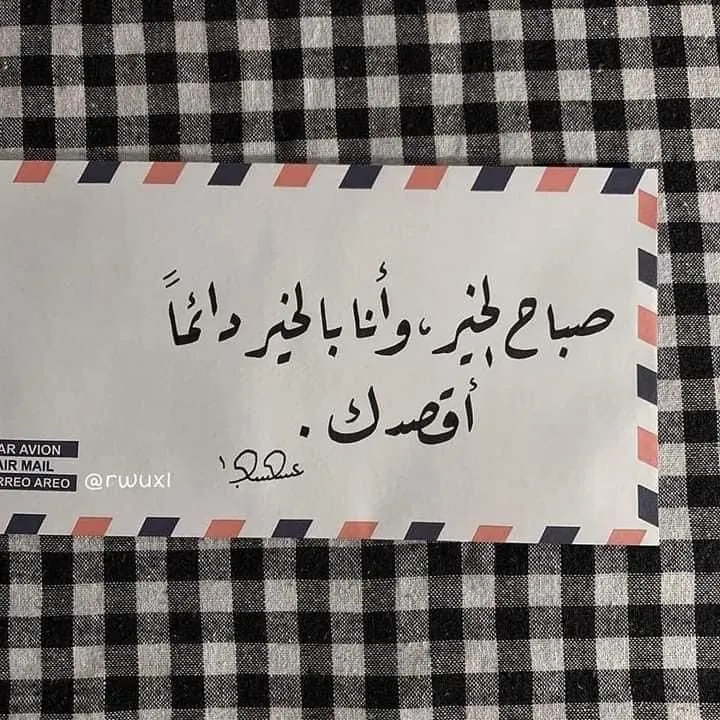 صباح الخير، وأنا بالخير دائماً
أقصدك.
AR AVION
AIR MAIL
RREO AREO
@rwuxl